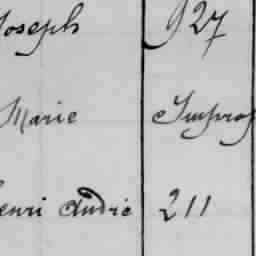 Joseph 927
Marie Improp
Henri André 211